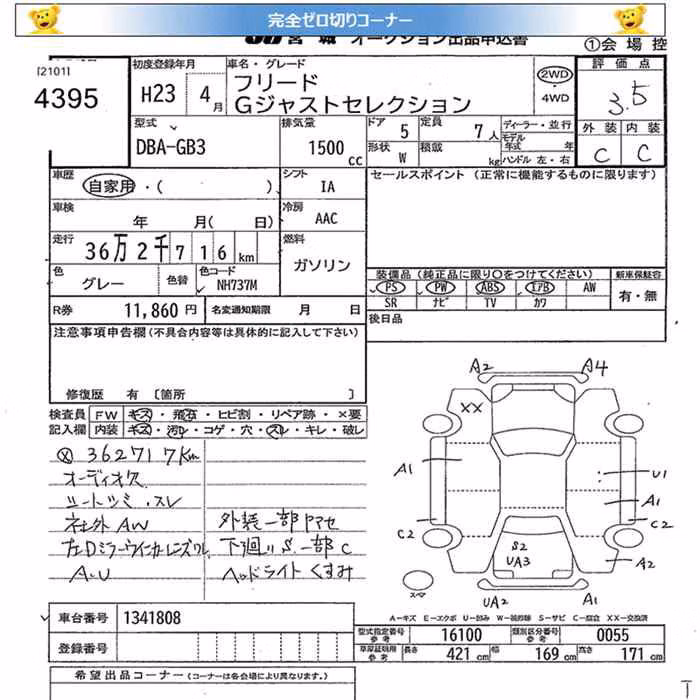 完全ゼロ切りコーナー
JU宮城 オークション出品申込書
①会 場 控
[2101]
4395
初度登録年月
H23 4月
車名・グレード
フリード
Gジャストセレクション
2WD
4WD
評価点
3.5
外装 内装
C C
型式
DBA-GB3
排気量
1500 cc
ドア 5
定員 7人
形状 W
積載 kg
ディーラー・並行
モデル年式 年
ハンドル 左・右
車歴
自家用・( )
シフト
IA
セールスポイント (正常に機能するものに限ります)
車検
年 月( 日)
冷房
AAC
走行
36万2千716km
燃料
ガソリン
色
グレー
色替
色コード
NH737M
装備品(純正品に限り○をつけてください)
新車保証書
PS PW ABS エアB AW
有・無
SR ナビ TV カワ
R券 11,860円
名変通知期限 月 日
後日品
注意事項申告欄(不具合内容等は具体的に記入して下さい)
修復歴 有 〔箇所 〕
検査員記入欄
FW キズ・飛石・ヒビ割・リペア跡・×要
内装 キズ・汚レ・コゲ・穴・スレ・キレ・破レ
ⓧ362717Km
オーディオ欠
シートツミ・スレ
社外AW
外装一部ヤマセ
左Dミラーウィンカーレンズワレ
下廻リS.一部C
A.U
ヘッドライトくすみ
A2 A4
XX
A1 U1
A1
C2 C2
S2
UA3
A2
スペア
UA2 A1
A-キズ E-エクボ U-凹み W-補修跡 S-サビ C-腐蝕 XX-交換済
車台番号 1341808
登録番号
型式指定番号 参考 16100
類別区分番号 参考 0055
車庫証明用 参考 長さ 421cm 幅 169cm 高さ 171cm
希望出品コーナー(コーナーは各会場により異なります。)